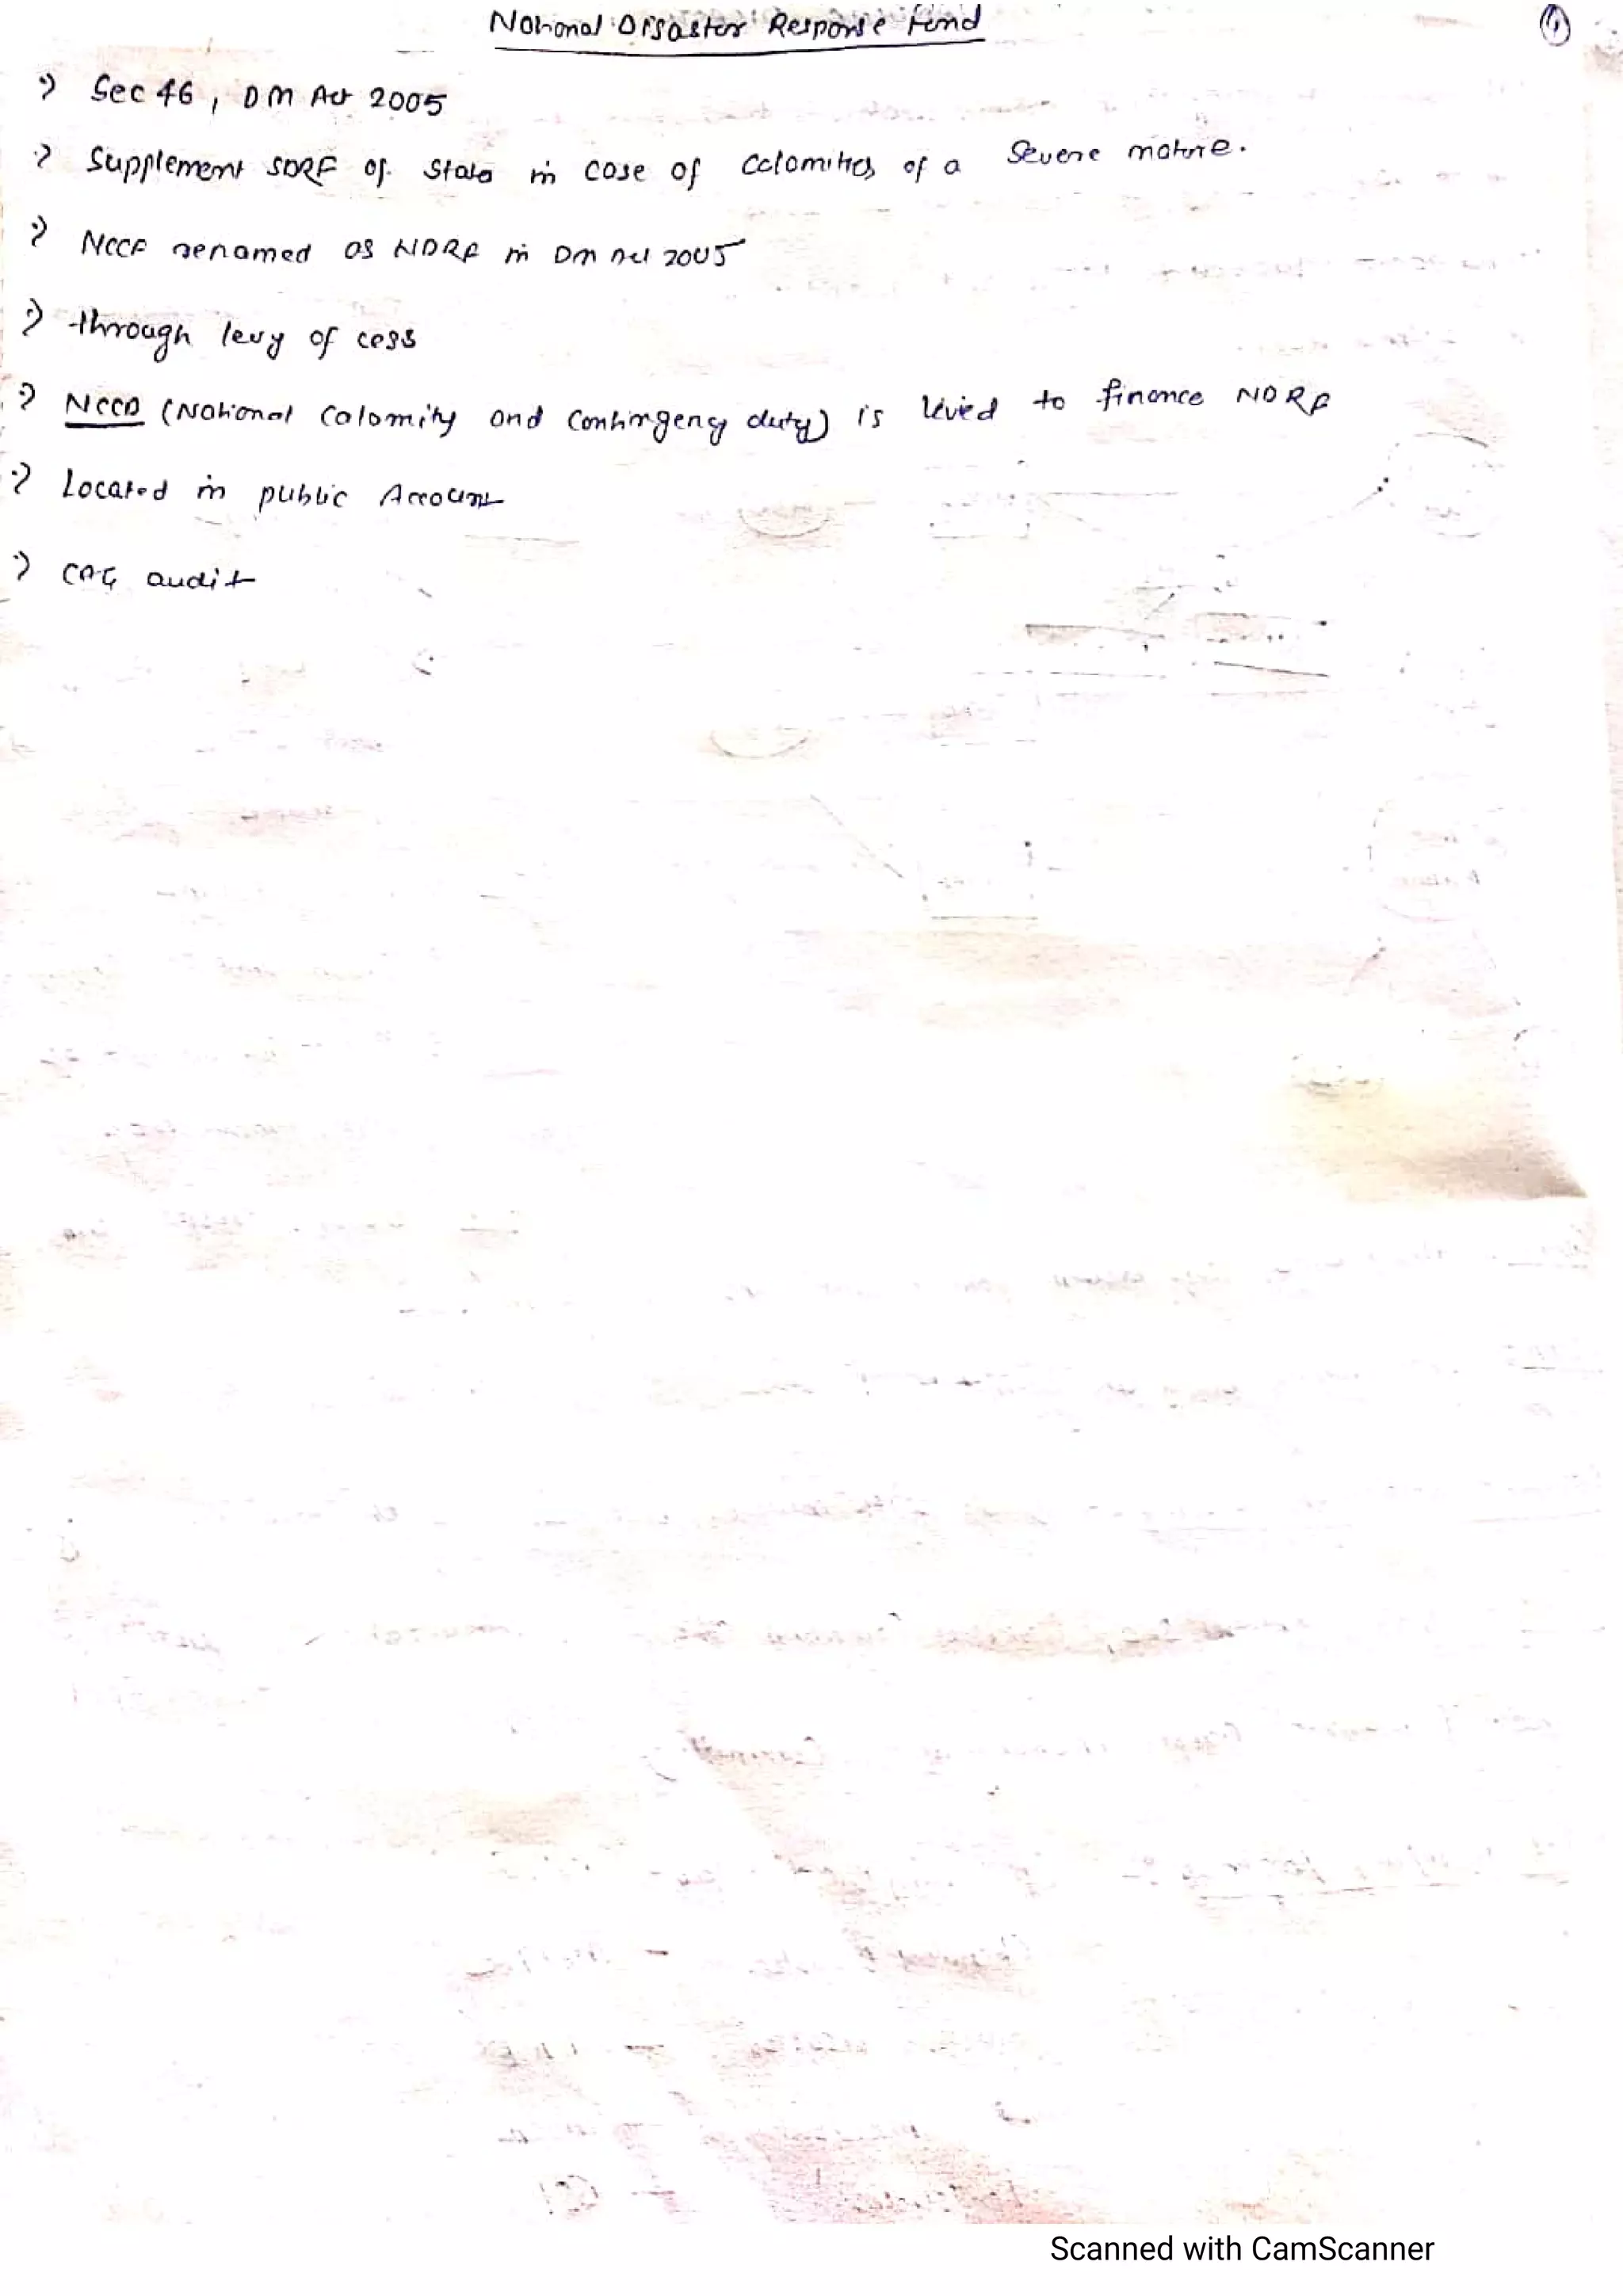 National Disaster Response Fund
Sec 46, DM Act 2005
Supplement SDRF of State in case of calamities of a severe nature.
NCCF renamed as NDRF in DM Act 2005
through levy of cess
NCCD (National Calamity and Contingency duty) is levied to finance NDRF
Located in public Account
CAG audit
Scanned with CamScanner